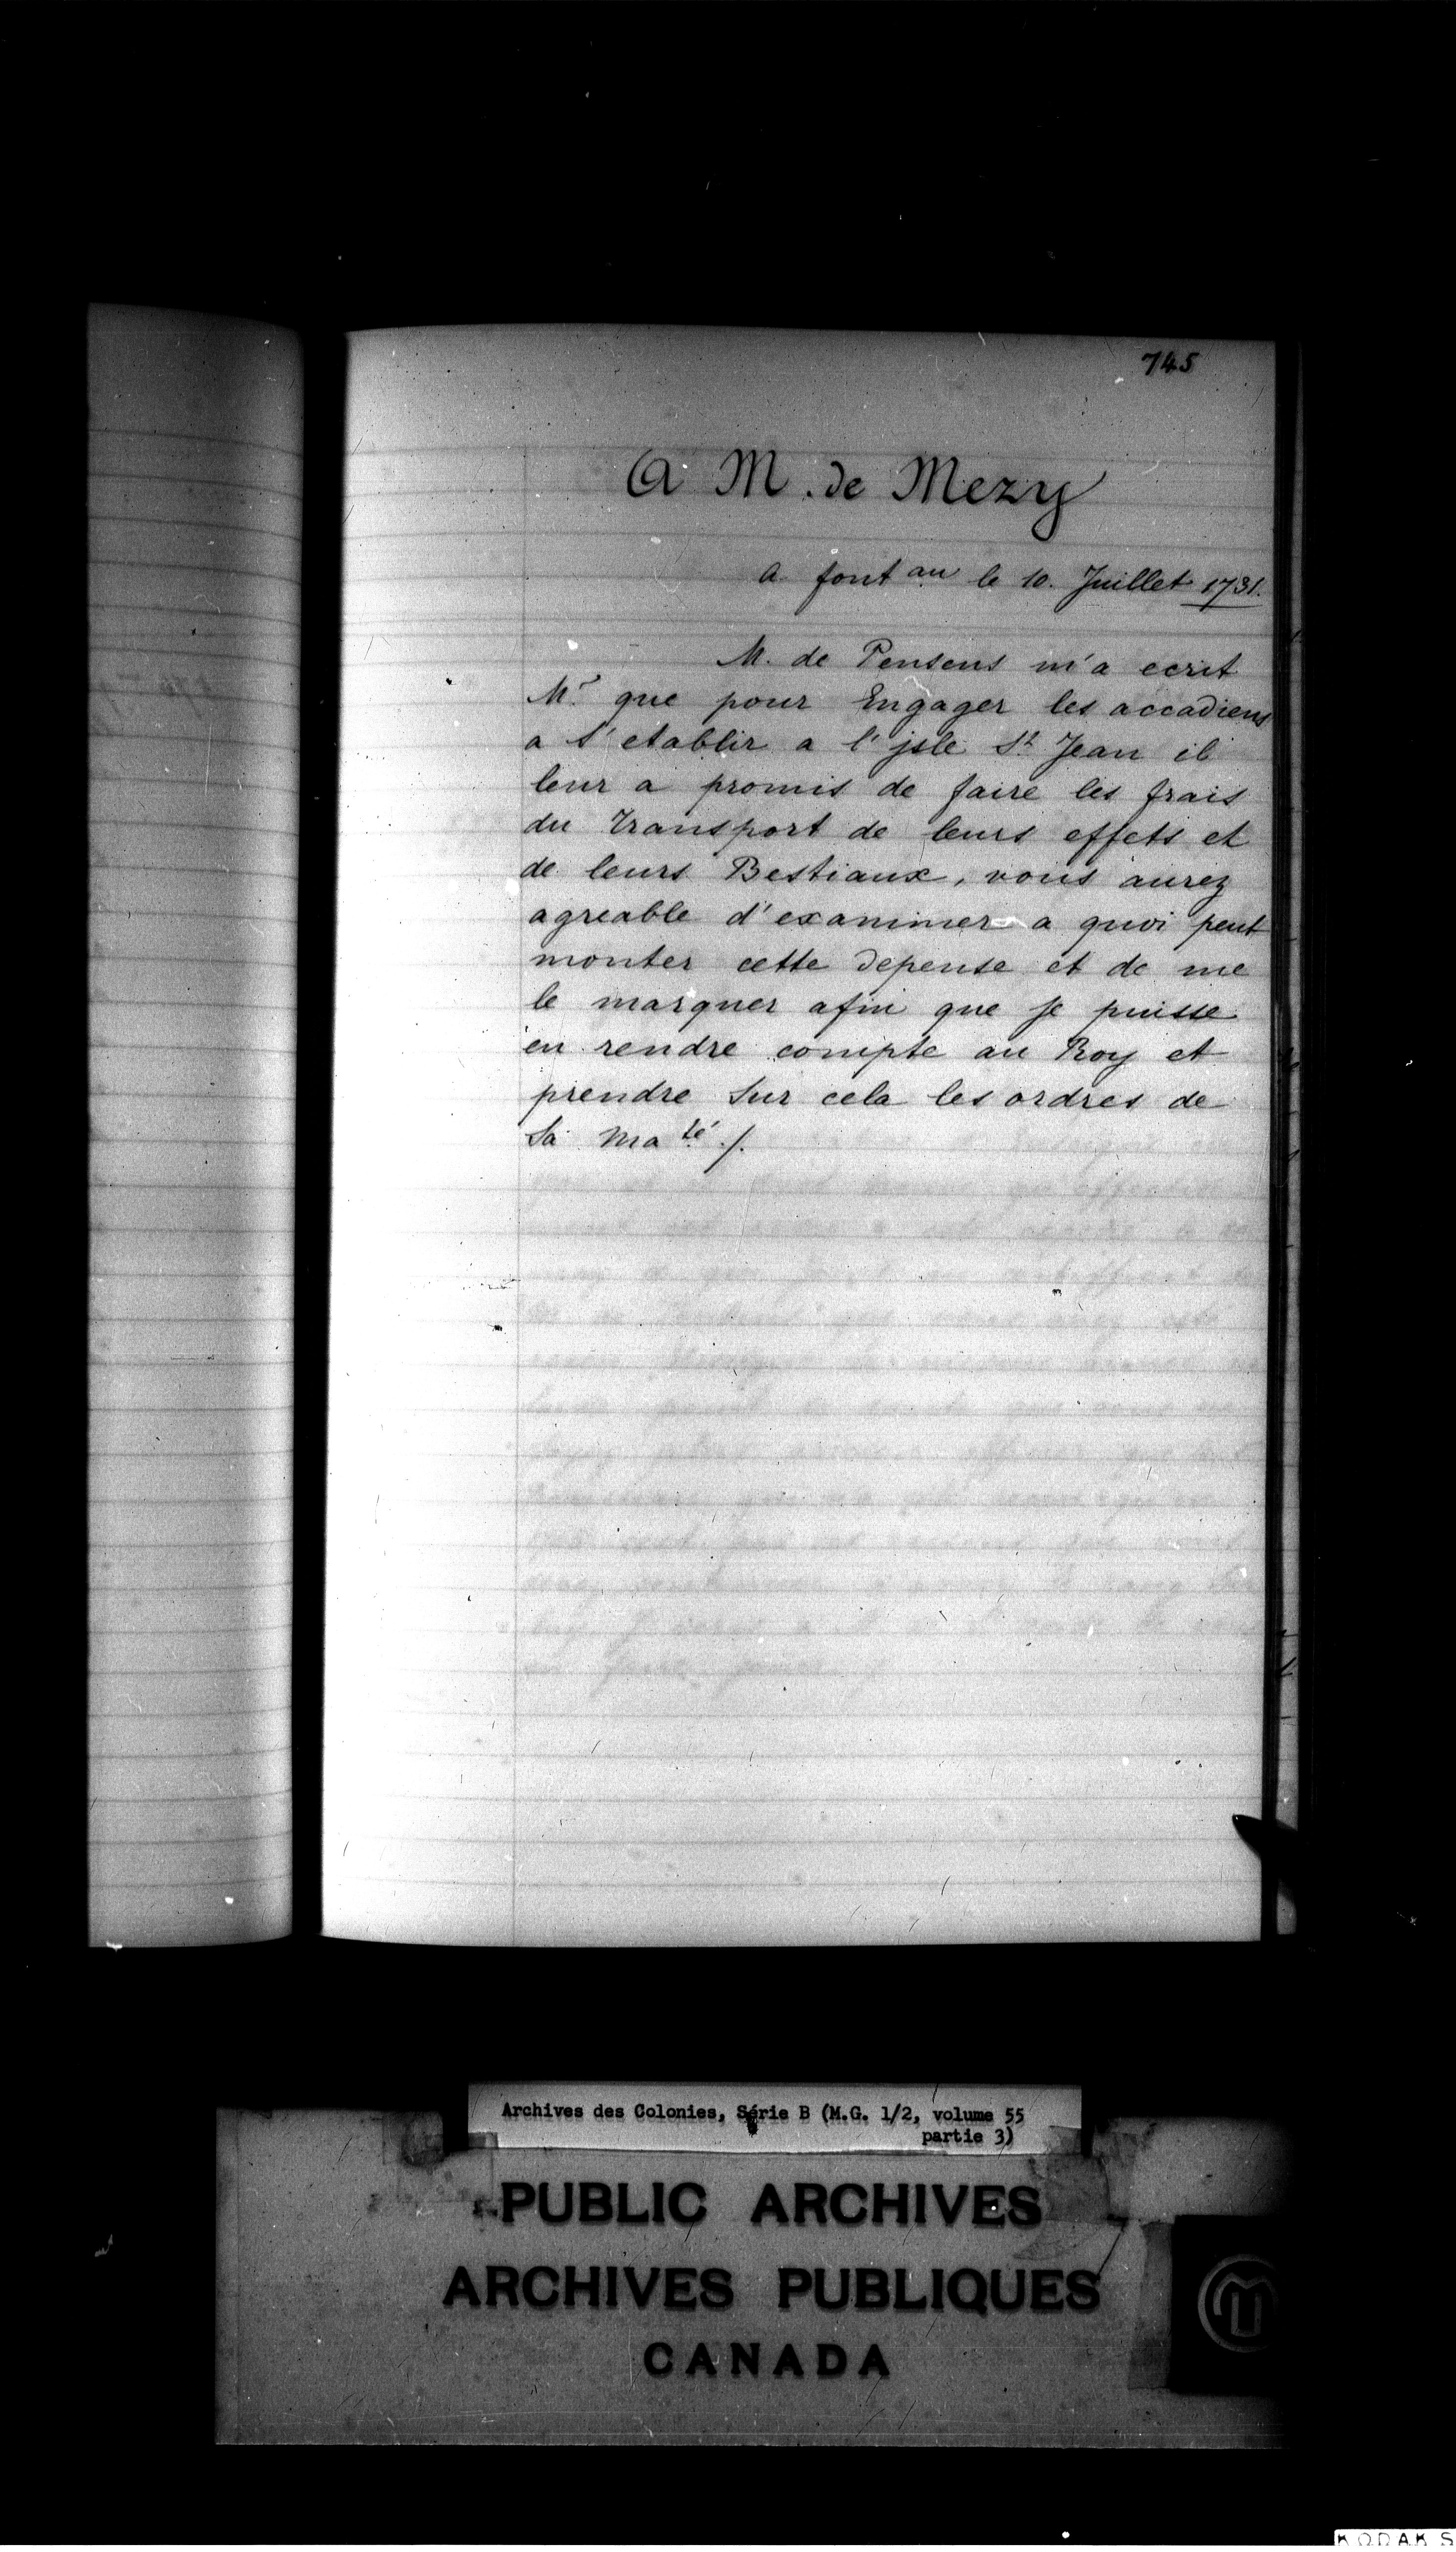 745
A M. de Mezy
A font au le 10. Juillet 1731.
M. de Pensens m'a ecrit
Mr. que pour Engager les accadiens
a s'etablir a l'jsle St Jean il
leur a promis de faire les frais
du transport de leurs effets et
de leurs Bestiaux, vous aurez
agreable d'examiner a quoi peut
monter cette depense et de me
le marquer afin que je puisse
en rendre compte au Roy et
prendre sur cela les ordres de
Sa Ma té ./.
Archives des Colonies, Série B (M.G. 1/2, volume 55
partie 3)
PUBLIC ARCHIVES
ARCHIVES PUBLIQUES
CANADA
KODAK S